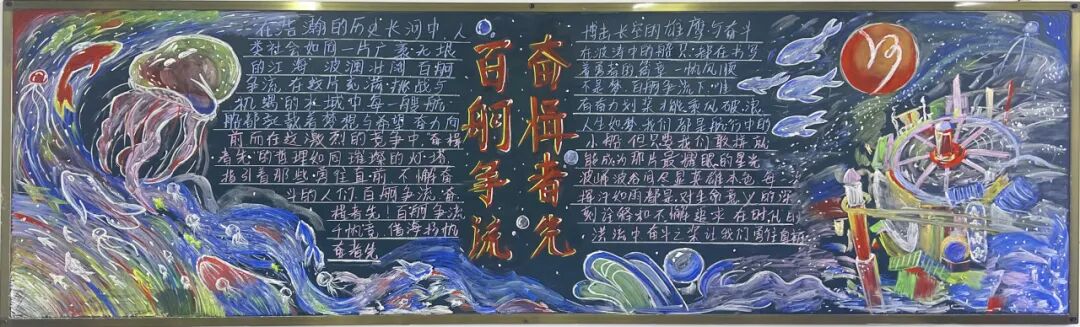 在浩瀚的历史长河中，人
类社会如同一片广袤无垠
的江海，波澜壮阔，百舸
争流，在这片充满挑战与
机遇的水域中每一艘航
船都承载着梦想与希望奋力向
前而在这激烈的竞争中，奋楫
者先，的哲理如同璀璨的灯塔，
指引着那些勇往直前，不懈奋
斗的人们，百舸争流，奋
楫者先！百舸争流
千帆竞，借海扬帆
奋者先
百舸争流
奋楫者先
搏击长空的雄鹰与奋斗
在波涛中的船只，都在书写
着勇者的篇章一帆风顺
不是梦，百舸争流下，唯
有奋力划桨才能乘风破浪
人生如梦，我们都是航行中的
小船，但只要我们敢拼敢
能成为那片最耀眼的星光
波峰波谷间尽显英雄本色，每
挥汗如雨都是对生命意义的深
刻诠释和不懈追求，在时代的
洪流中奋斗之桨让我们勇往直前